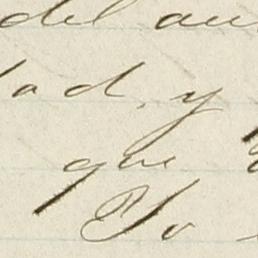 del au
dad, y
que
Yo